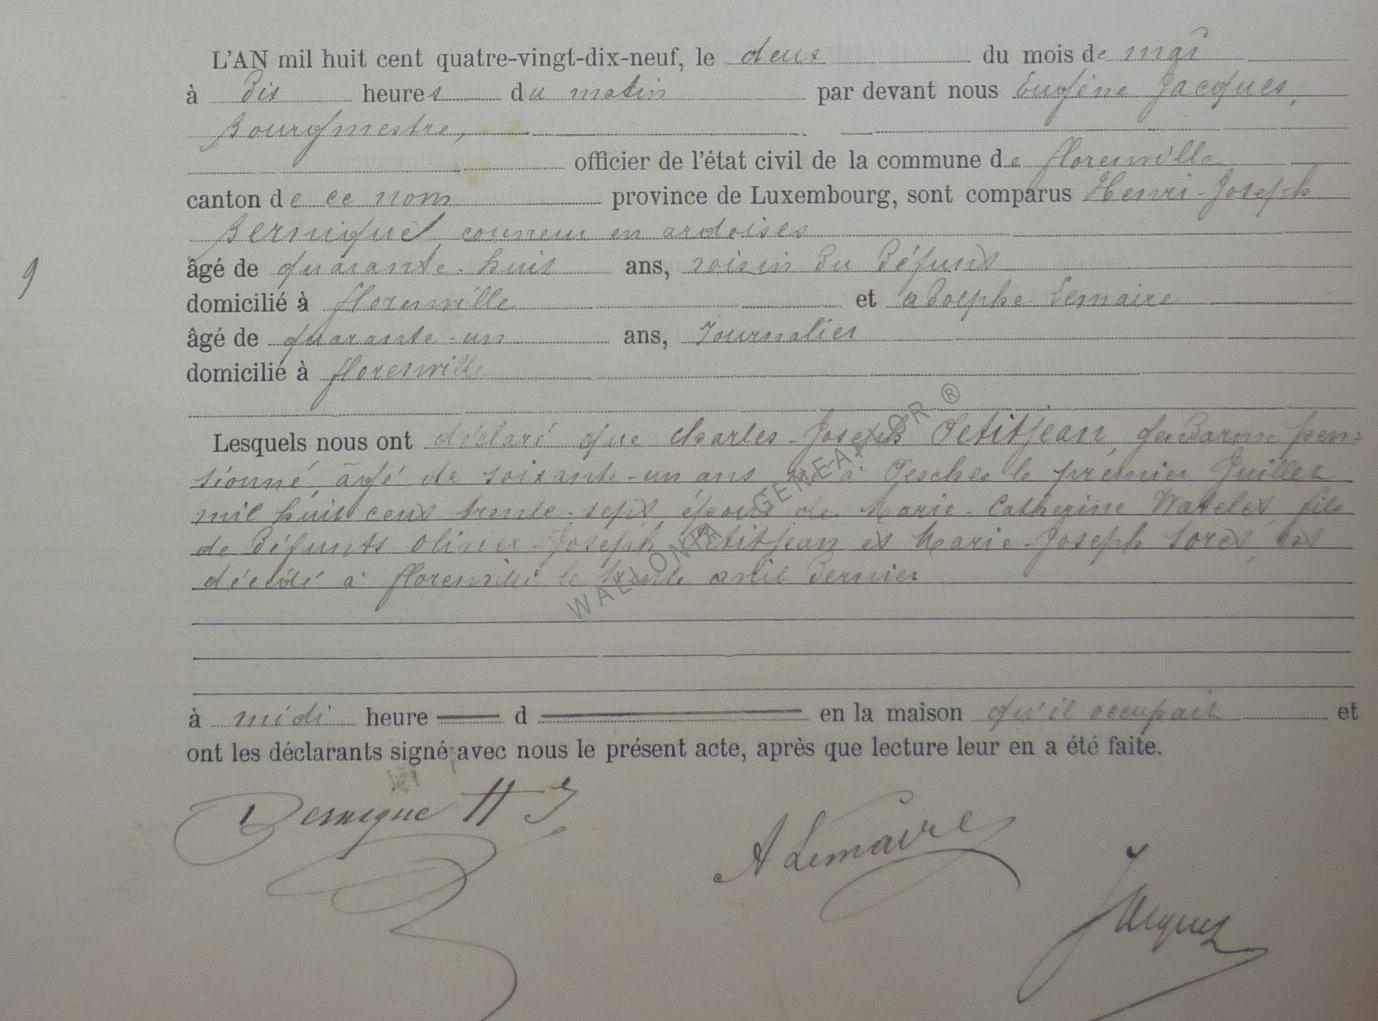 L'AN mil huit cent quatre-vingt-dix-neuf, le deux du mois de mai
à dix heures du matin par devant nous Eugène Jacques,
Bourgmestre,
officier de l'état civil de la commune de florenville
canton de ce nom province de Luxembourg, sont comparus Henri-Joseph
Bernique, couvreur en ardoises
9
âgé de quarante-huit ans, voisin du défunt
domicilié à florenville et adolphe Lemaire
âgé de quarante-un ans, Journalier
domicilié à florenville
Lesquels nous ont déclaré que Charles-Joseph Petitjean gendarme pen-
sionné, âgé de soixante-un ans né à le premier Juillet
mil huit cent trente-sept, époux de Marie-Catherine Watelet, fils
de défunts Olivier-Joseph Petitjean et Marie-Joseph est
décédé à florenville le trente avril dernier
à midi heure d en la maison qu'il occupait et
ont les déclarants signé avec nous le présent acte, après que lecture leur en a été faite.
Bernique H J
A Lemaire
Jacques
WALLONIA GENEALOR ®